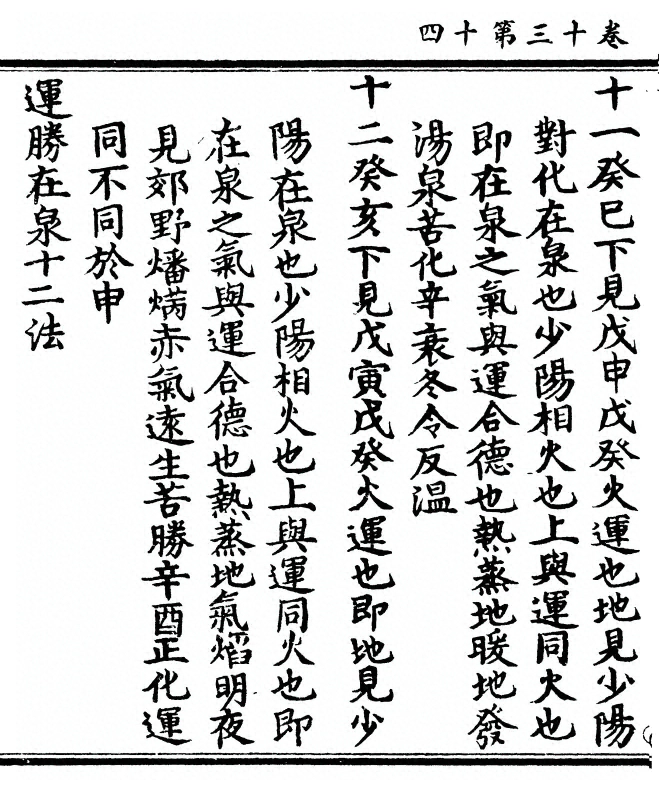 卷十三第十四
十一癸巳下見戊申戊癸火運也地見少陽
對化在泉也少陽相火也上與運同火也
即在泉之氣與運合德也熱蒸地暖地發
湯泉苦化辛衰冬令反温
十二癸亥下見戊寅戊癸火運也即地見少
陽在泉也少陽相火也上與運同火也即
在泉之氣與運合德也熱蒸地氣熖明夜
見郊野燔焫赤氣遠生苦勝辛酉正化運
同不同於申
運勝在泉十二法